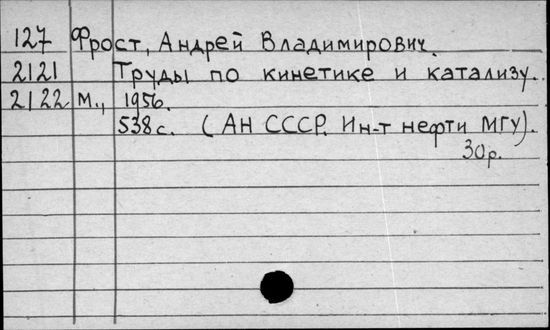 127 Фрост, Андрей Владимирович.
2121 Труды по кинетике и катализу.
2122 М., 1956.
538 с. (АН СССР. Ин-т нефти МГУ).
30р.